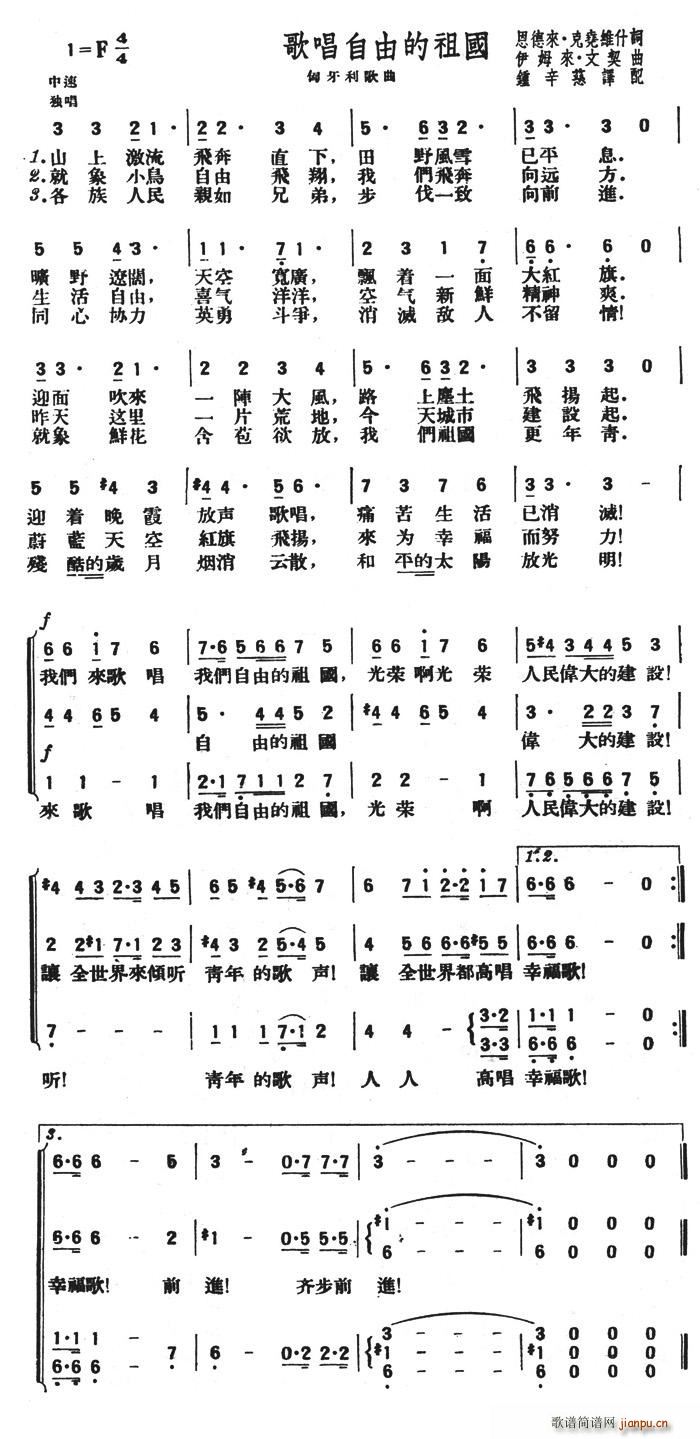 歌唱自由的祖國
1=F 4/4
匈牙利歌曲
恩德來·克堯維什詞
伊姆來·文契曲
鍾辛慈譯配
中速
独唱
3 3 2 1· 2 2· 3 4 5· 6 3 2· 3 3· 3 0
1.山上激流 飛奔直下，田野風雪 已平息．
2.就象小鳥 自由飛翔，我們飛奔 向远方．
3.各族人民 親如兄弟，步伐一致 向前進．
5 5 4 3· 1 1· 7 1· 2 3 1 7 6 6· 6 0
曠野遼闊，天空寬廣，飄着一面 大紅旗．
生活自由，喜气洋洋，空气新鮮 精神爽．
同心协力 英勇斗爭，消滅敌人 不留情！
3 3· 2 1· 2 2 3 4 5· 6 3 2· 3 3 3 0
迎面吹來 一陣大風，路上塵土 飛揚起．
昨天这里 一片荒地，今天城市 建設起．
就象鮮花 含苞欲放，我們祖國 更年青．
5 5 #4 3 #4 4· 5 6· 7 3 7 6 3 3· 3 -
迎着晚霞 放声歌唱，痛苦生活 已消滅！
蔚藍天空 紅旗飛揚，來为幸福 而努力！
殘酷的歲月 烟消云散，和平的太陽 放光明！
f
6 6 1 7 6 7·6 5 6 6 7 5 6 6 1 7 6 5 #4 3 4 4 5 3
我們來歌唱 我們自由的祖國，光荣啊光荣 人民偉大的建設！
4 4 6 5 4 5· 4 4 5 2 #4 4 6 5 4 3· 2 2 3 7
自由的祖國 偉大的建設！
f
1 1 - 1 2·1 7 1 1 2 7 2 2 - 1 7 6 5 6 6 7 5
來歌唱 我們自由的祖國，光荣啊 人民偉大的建設！
1.2.
#4 4 3 2·3 4 5 6 5 #4 5·6 7 6 7 1 2·2 1 7 6·6 6 - 0
2 2 #1 7·1 2 3 #4 3 2 5·4 5 4 5 6 6·6 #5 5 6·6 6 - 0
讓全世界來傾听 青年的歌声！讓全世界都高唱 幸福歌！
7 - - - 1 1 1 7·1 2 4 4 - 3·2 1·1 1 - 0
3·3 6·6 6 - 0
听！ 青年的歌声！人人 高唱幸福歌！
3.
6·6 6 - 5 3 - 0·7 7·7 3 - - - 3 0 0 0
6·6 6 - 2 #1 - 0·5 5·5 #1 - - - #1 0 0 0
6 - - - 6 0 0 0
幸福歌！ 前進！ 齐步前進！
1·1 1 - 7 6 - 0·2 2·2 3 - - - 3 0 0 0
6·6 6 #1 - - - #1 0 0 0
6 - - - 6 0 0 0
歌谱简谱网
jianpu.cn